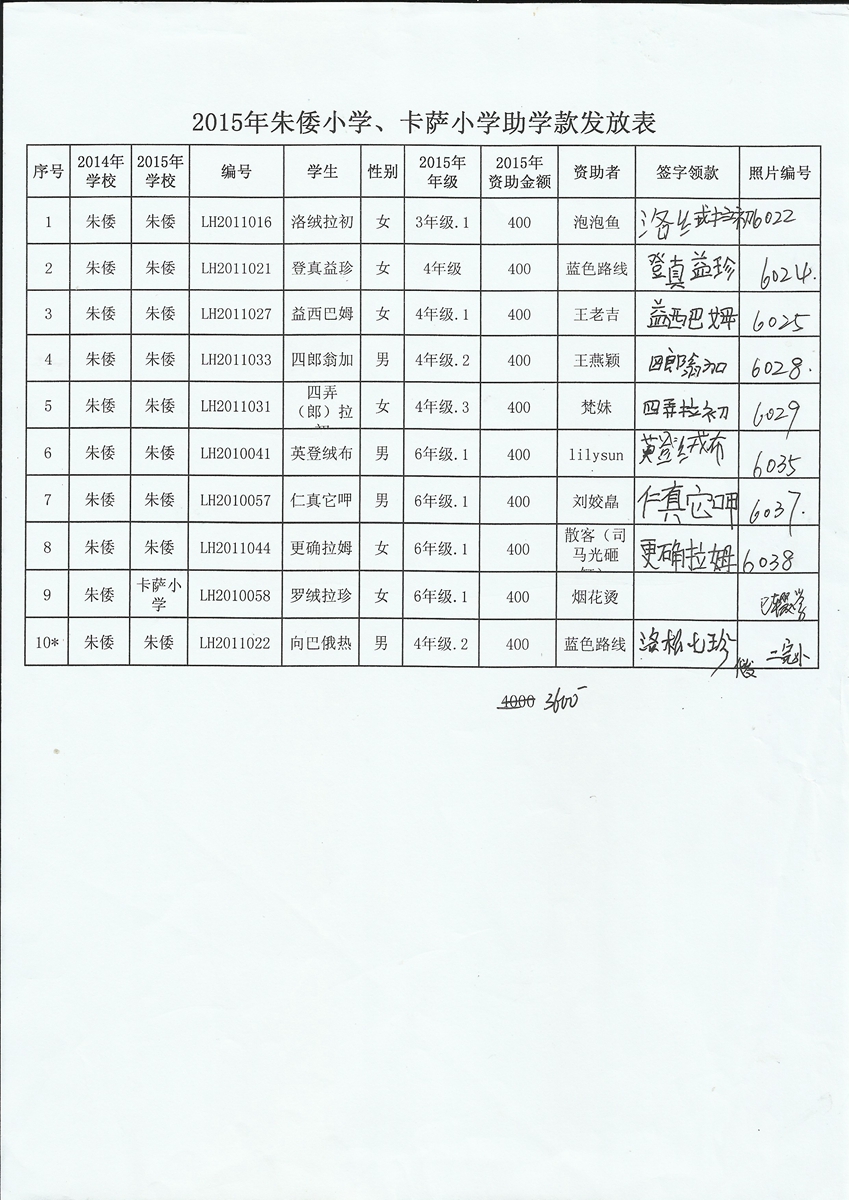 2015年朱倭小学、卡萨小学助学款发放表
序号 2014年学校 2015年学校 编号 学生 性别 2015年年级 2015年资助金额 资助者 签字领款 照片编号
1 朱倭 朱倭 LH2011016 洛绒拉初 女 3年级.1 400 泡泡鱼 洛绒拉初 6022
2 朱倭 朱倭 LH2011021 登真益珍 女 4年级 400 蓝色路线 登真益珍 6024.
3 朱倭 朱倭 LH2011027 益西巴姆 女 4年级.1 400 王老吉 益西巴姆 6025
4 朱倭 朱倭 LH2011033 四郎翁加 男 4年级.2 400 王燕颖 四郎翁加 6028.
5 朱倭 朱倭 LH2011031 四弄（郎）拉 女 4年级.3 400 梵妹 四弄拉初 6029
6 朱倭 朱倭 LH2010041 英登绒布 男 6年级.1 400 lilysun 英登绒布 6035
7 朱倭 朱倭 LH2010057 仁真它呷 男 6年级.1 400 刘姣皛 仁真它呷 6037.
8 朱倭 朱倭 LH2011044 更确拉姆 女 6年级.1 400 散客（司马光砸 更确拉姆 6038
9 朱倭 卡萨小学 LH2010058 罗绒拉珍 女 6年级.1 400 烟花烫 已辍学
10* 朱倭 朱倭 LH2011022 向巴俄热 男 4年级.2 400 蓝色路线 洛松七珍 二完小
4000 3600